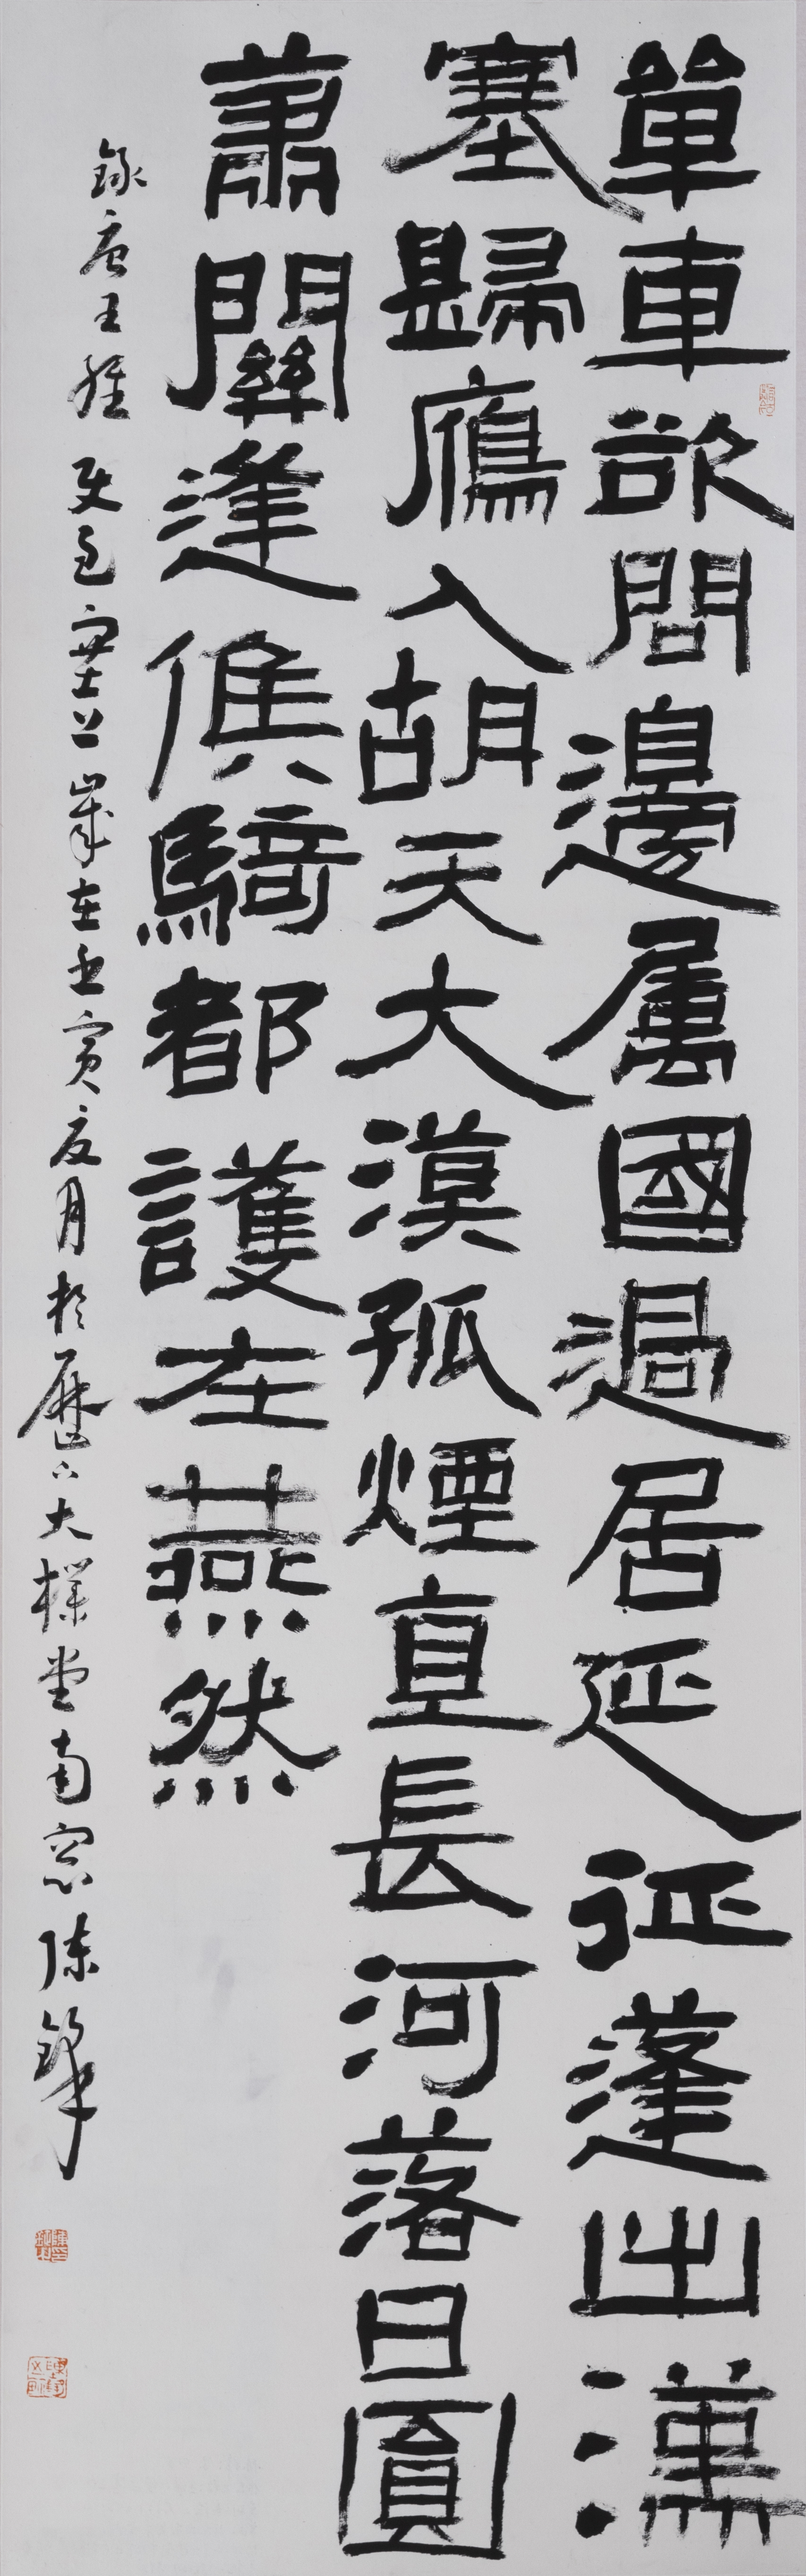 單車欲問邊屬國過居延征蓬出漢
塞歸鴈入胡天大漠孤煙直長河落日圓
蕭關逢候騎都護在燕然
錄唐王維使至塞上歲在壬寅夏月於歷下大樸堂南窗陳鋒